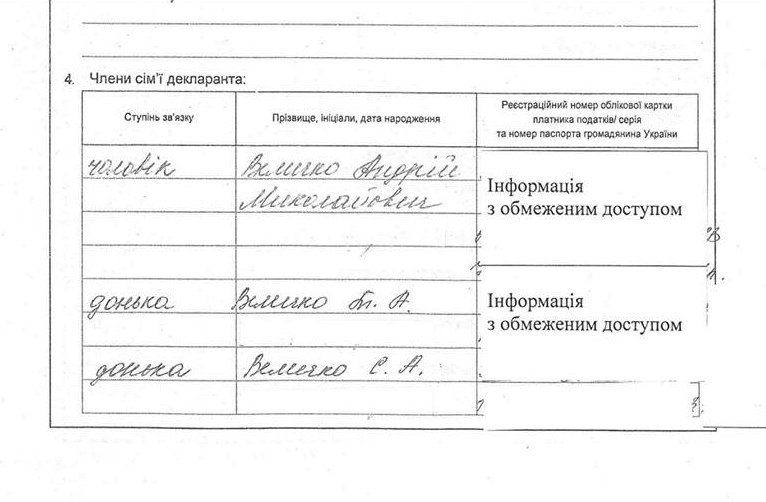 4. Члени сім'ї декларанта:
Ступінь зв'язку
Прізвище, ініціали, дата народження
Реєстраційний номер облікової картки
платника податків/ серія
та номер паспорта громадянина України
чоловік
Величко Андрій
Миколайович
Інформація
з обмеженим доступом
донька
Величко Т. А.
Інформація
з обмеженим доступом
донька
Величко С. А.